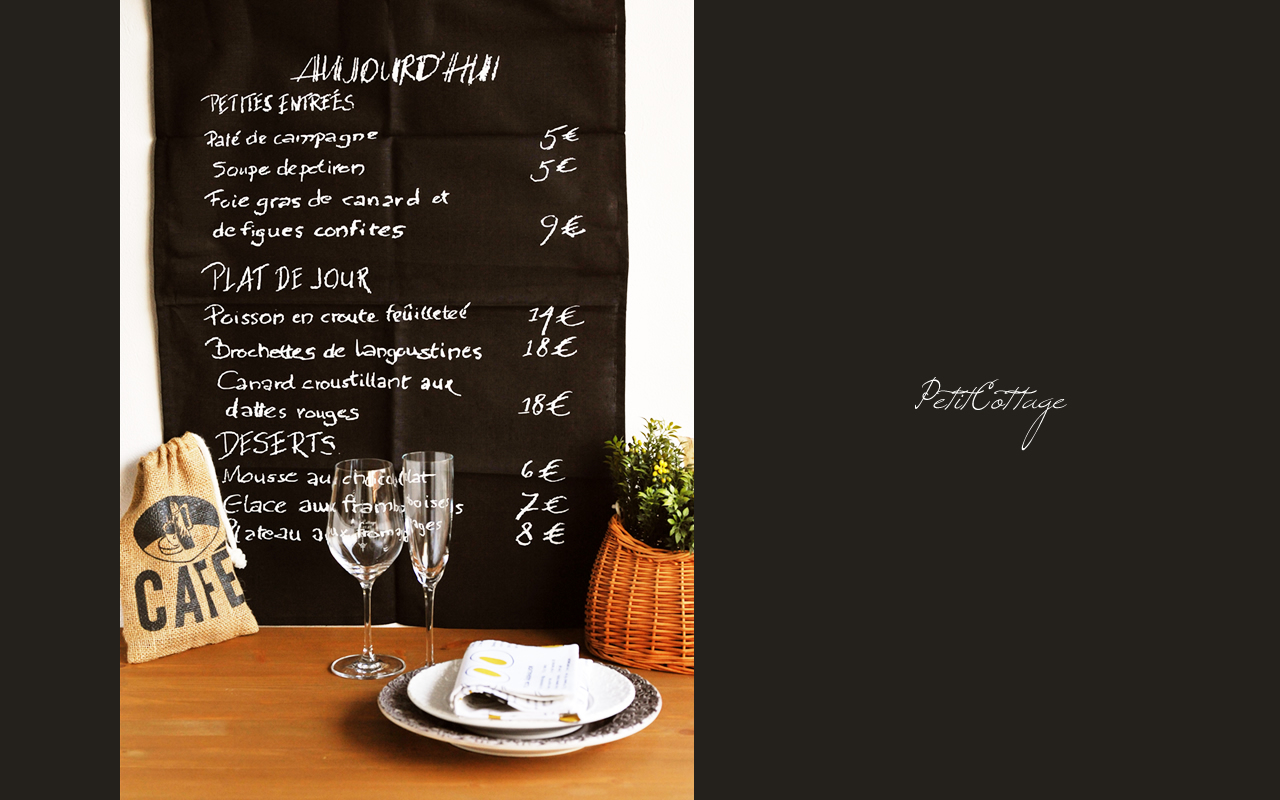 AUJOURD'HUI
PETITES ENTREÉS
Paté de campagne 5€
Soupe de potiron 5€
Foie gras de canard et
de figues confites 9€
PLAT DE JOUR
Poisson en croute feûilleteé 14€
Brochettes de langoustines 18€
Canard croustillant aux
dattes rouges 18€
DESERTS
Mousse au chocolat 6€
Glace aux framboises 7€
Plateau aux fromages 8€
CAFÉ
PetitCottage